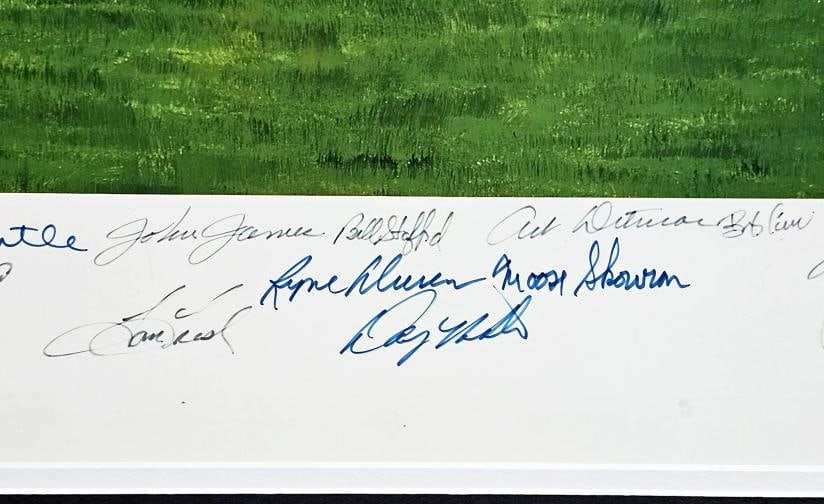 ntle John James Bill Stafford Art Ditmar Bob Cerv
Ryne Duren Moose Skowron
Tom Tresh